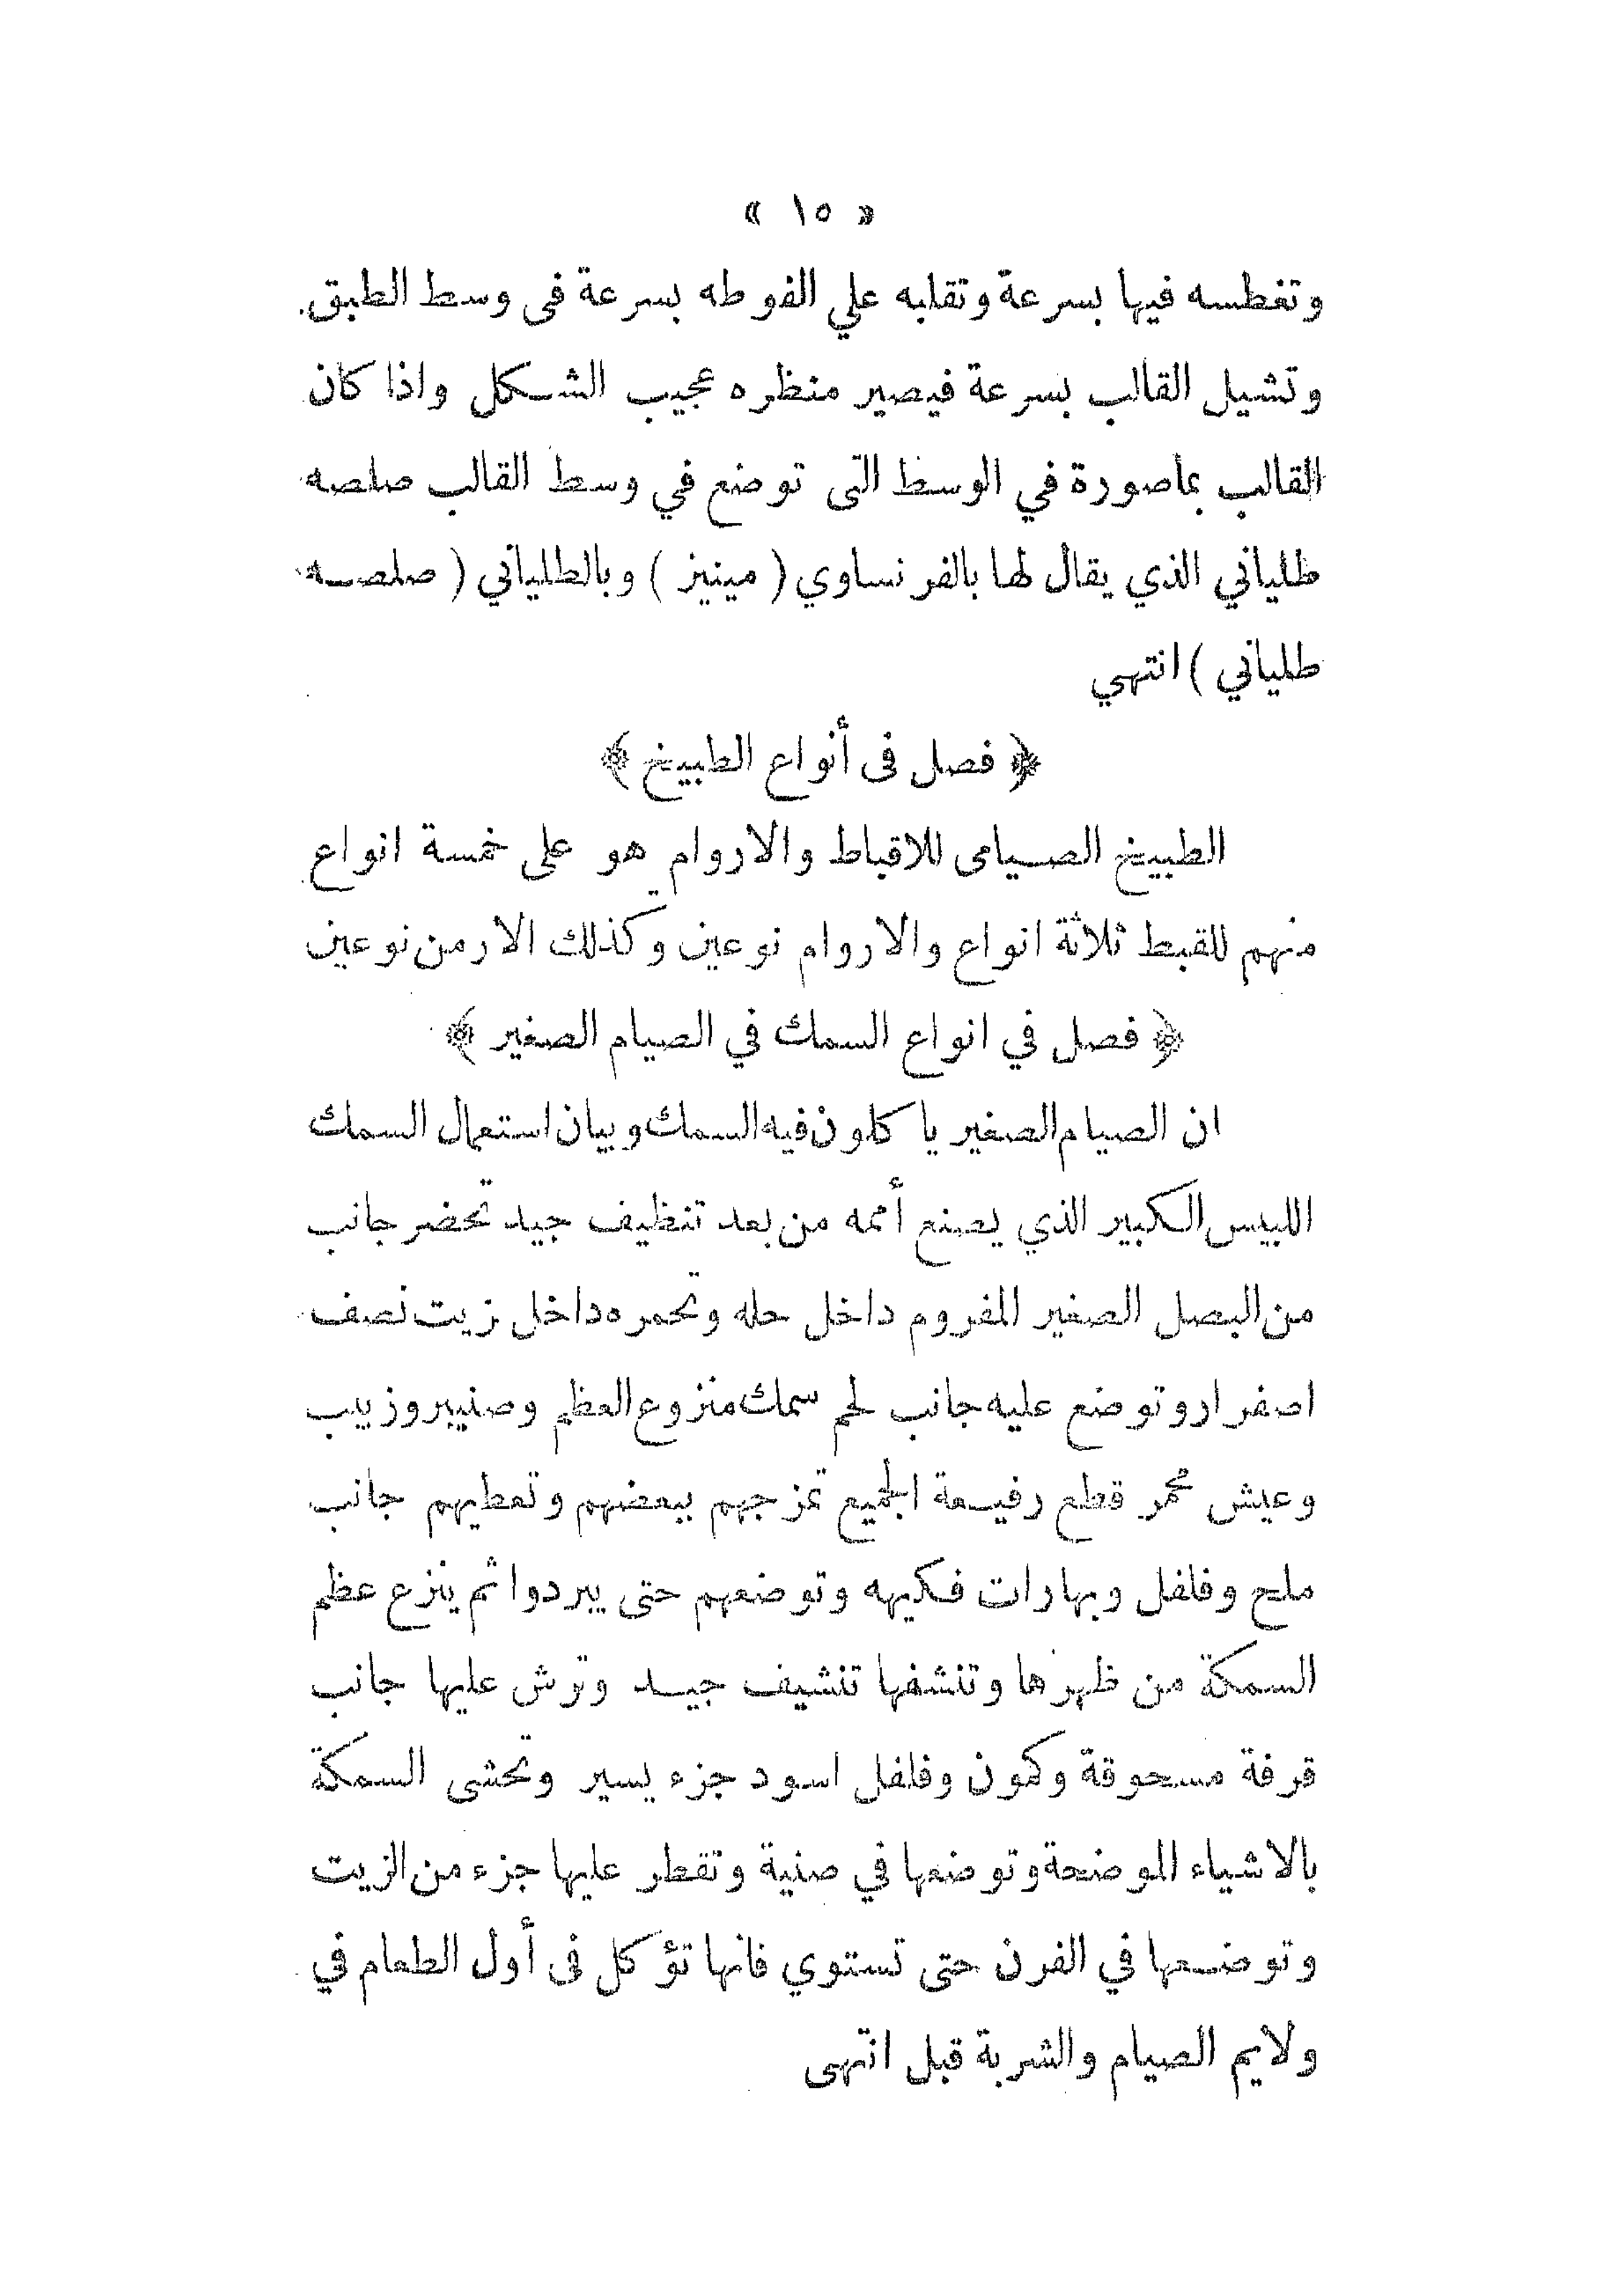 « ١٥ »
وتغطسه فيها بسرعة وتقلبه علي الفوطه بسرعة فى وسط الطبق
وتشيل القالب بسرعة فيصير منظره عجيب الشكل واذا كان
القالب بماصورة في الوسط التى توضع في وسط القالب صلصه
طلياني الذي يقال لها بالفرنساوي ( مينيز ) وبالطلياني ( صلصه
طلياني ) انتهي
﴿ فصل فى أنواع الطبيخ ﴾
الطبيخ الصيامى للاقباط والاروام هو على خمسة انواع
منهم للقبط ثلاثة انواع والاروام نوعين وكذلك الارمن نوعين
﴿ فصل في انواع السمك في الصيام الصغير ﴾
ان الصيام الصغير ياكلون فيه السمك وبيان استعمال السمك
اللبيس الكبير الذي يصنع أممه من بعد تنظيف جيد تحضر جانب
من البصل الصغير المفروم داخل حله وتحمره داخل زيت نصف
اصفرار وتوضع عليه جانب لحم سمك منزوع العظم وصنيبر وزبيب
وعيش محمر قطع رفيعة الجميع تمزجهم ببعضهم وتعطيهم جانب
ملح وفلفل وبهارات فكيهه وتوضعهم حتى يبردوا ثم ينزع عظم
السمكة من ظهرها وتنشفها تنشيف جيد وترش عليها جانب
قرفة مسحوقة وكمون وفلفل اسود جزء يسير وتحشى السمكة
بالاشياء الموضحة وتوضعها في صنية وتقطر عليها جزء من الزيت
وتوضعها في الفرن حتى تستوي فانها تؤكل فى أول الطعام في
ولايم الصيام والشربة قبل انتهى